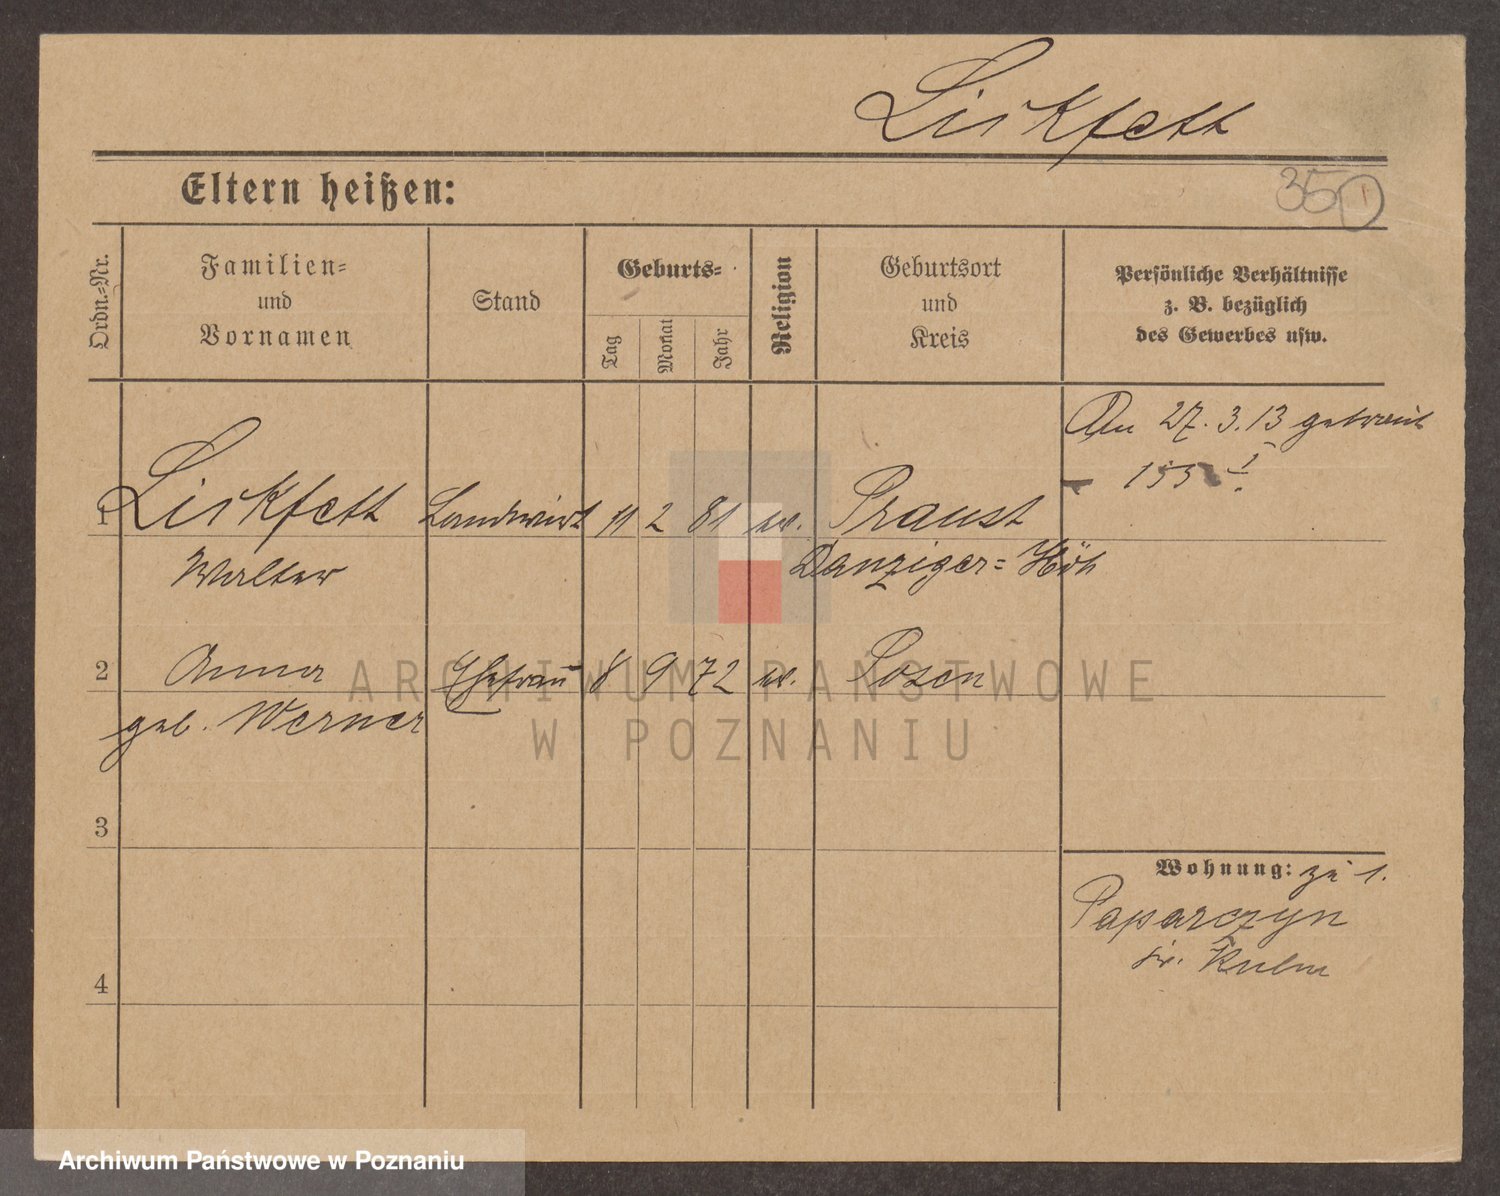 Liskfett
Eltern heißen:
35 1
Ordn.=Nr.
Familien=
und
Vornamen
Stand
Geburts=
Tag
Monat
Jahr
Religion
Geburtsort
und
Kreis
Persönliche Verhältnisse
z. B. bezüglich
des Gewerbes usw.
Am 27. 3. 13 getraut
1 Liskfett Landwirt 11 2 81 ev. Praust
Walter Danziger=Höh
2 Anna Ehefrau 8 9 72 ev. Posen
geb. Werner
3
4
Wohnung: zu 1.
Paparczyn
Kulm
ARCHIWUM PAŃSTWOWE
W POZNANIU
Archiwum Państwowe w Poznaniu